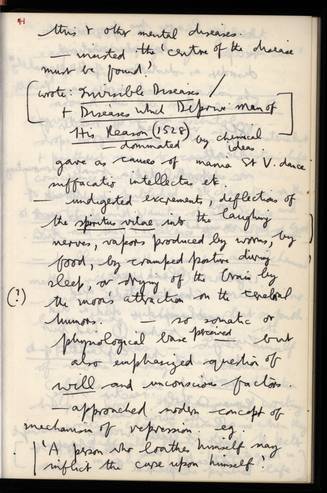 41
this & other mental diseases.
— insisted the 'centre of the disease
must be found.'
[wrote: Invisible Diseases /
+ Diseases which Deprive man of
His Reason (1528)]
— dominated by chemical ideas.
gave as causes of mania St V. dance
suffocatio intellectus etc
— undigested excrement, deflection of
the spiritus vitae into the laughing
nerves, vapors produced by worms, by
food, by cramped posture during
sleep, or drying of the brain by
(?) the moon's attraction on the cerebral
humors. — so somatic or
physiological base perceived — but
also emphasized question of
will and unconscious factors.
— approached modern concept of
mechanism of repression. eg.
'A person who loathes himself may
inflict the curse upon himself'.